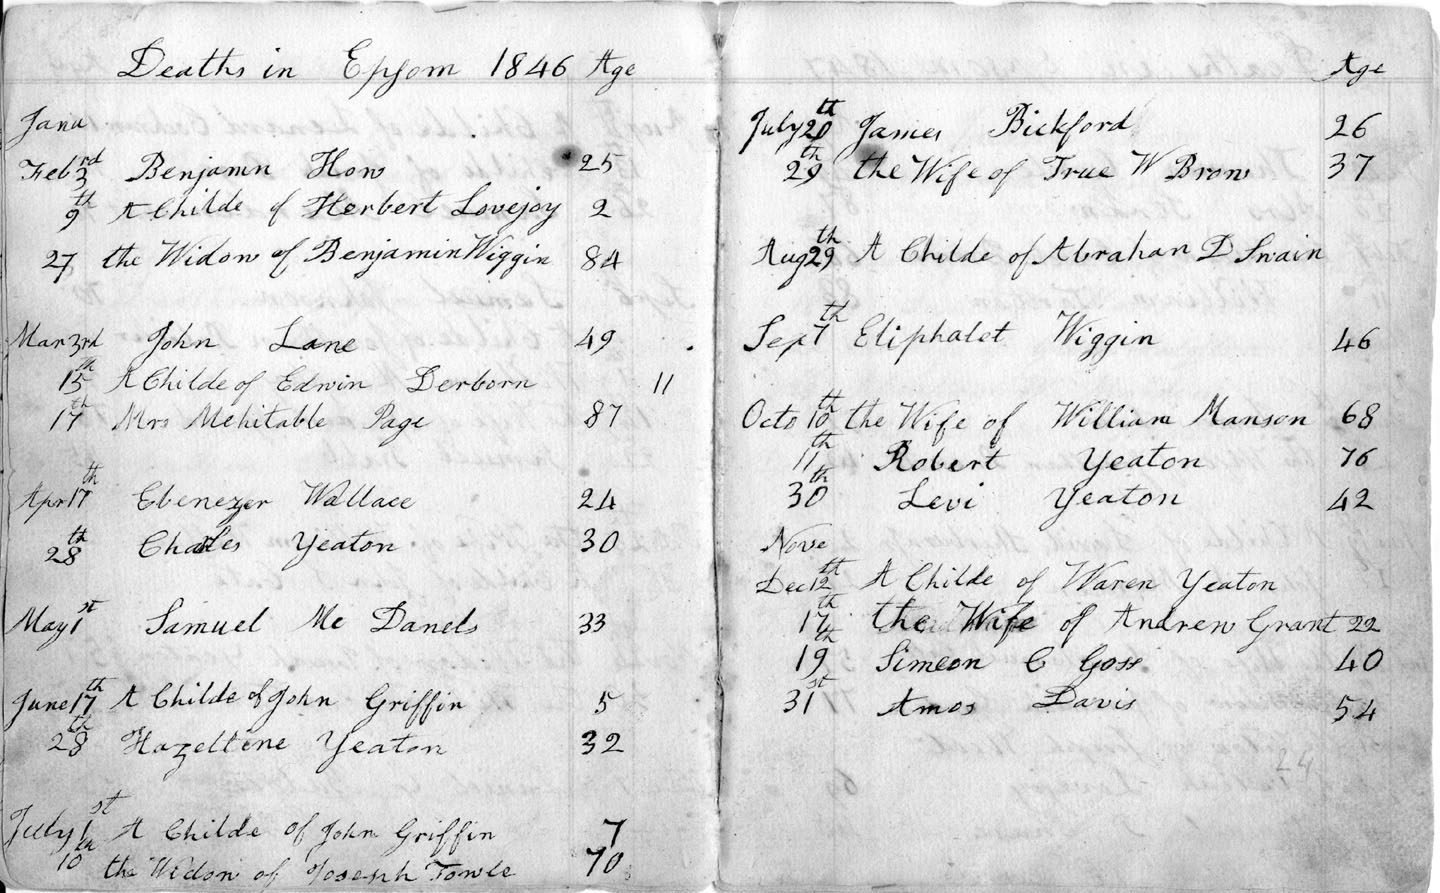 Deaths in Epsom 1846 Age
Janu
Feb 3rd Benjamn How 25
9th A Childe of Herbert Lovejoy 2
27 the Widow of Benjamin Wiggin 84
Mar 3rd John Lane 49
15th A Childe of Edwin Derborn 11
17th Mrs Mehitable Page 87
Apr 17th Ebenezer Wallace 24
28th Charles Yeaton 30
May 1st Samuel Mc Danels 33
June 17th A Childe of John Griffin 5
28th Hazeltene Yeaton 32
July 1st A Childe of John Griffin 7
10th the Widow of Joseph Towle 70
Age
July 20th James Bickford 26
29th the Wife of True W Brow 37
Aug 29th A Childe of Abrahan D Swain
Sep 7th Eliphalet Wiggin 46
Octo 10th the Wife of William Manson 68
11th Robert Yeaton 76
30th Levi Yeaton 42
Nove
Dec 12th A Childe of Waren Yeaton
17th the Wife of Andrew Grant 22
19th Simeon C Goss 40
31st Amos Davis 54
24